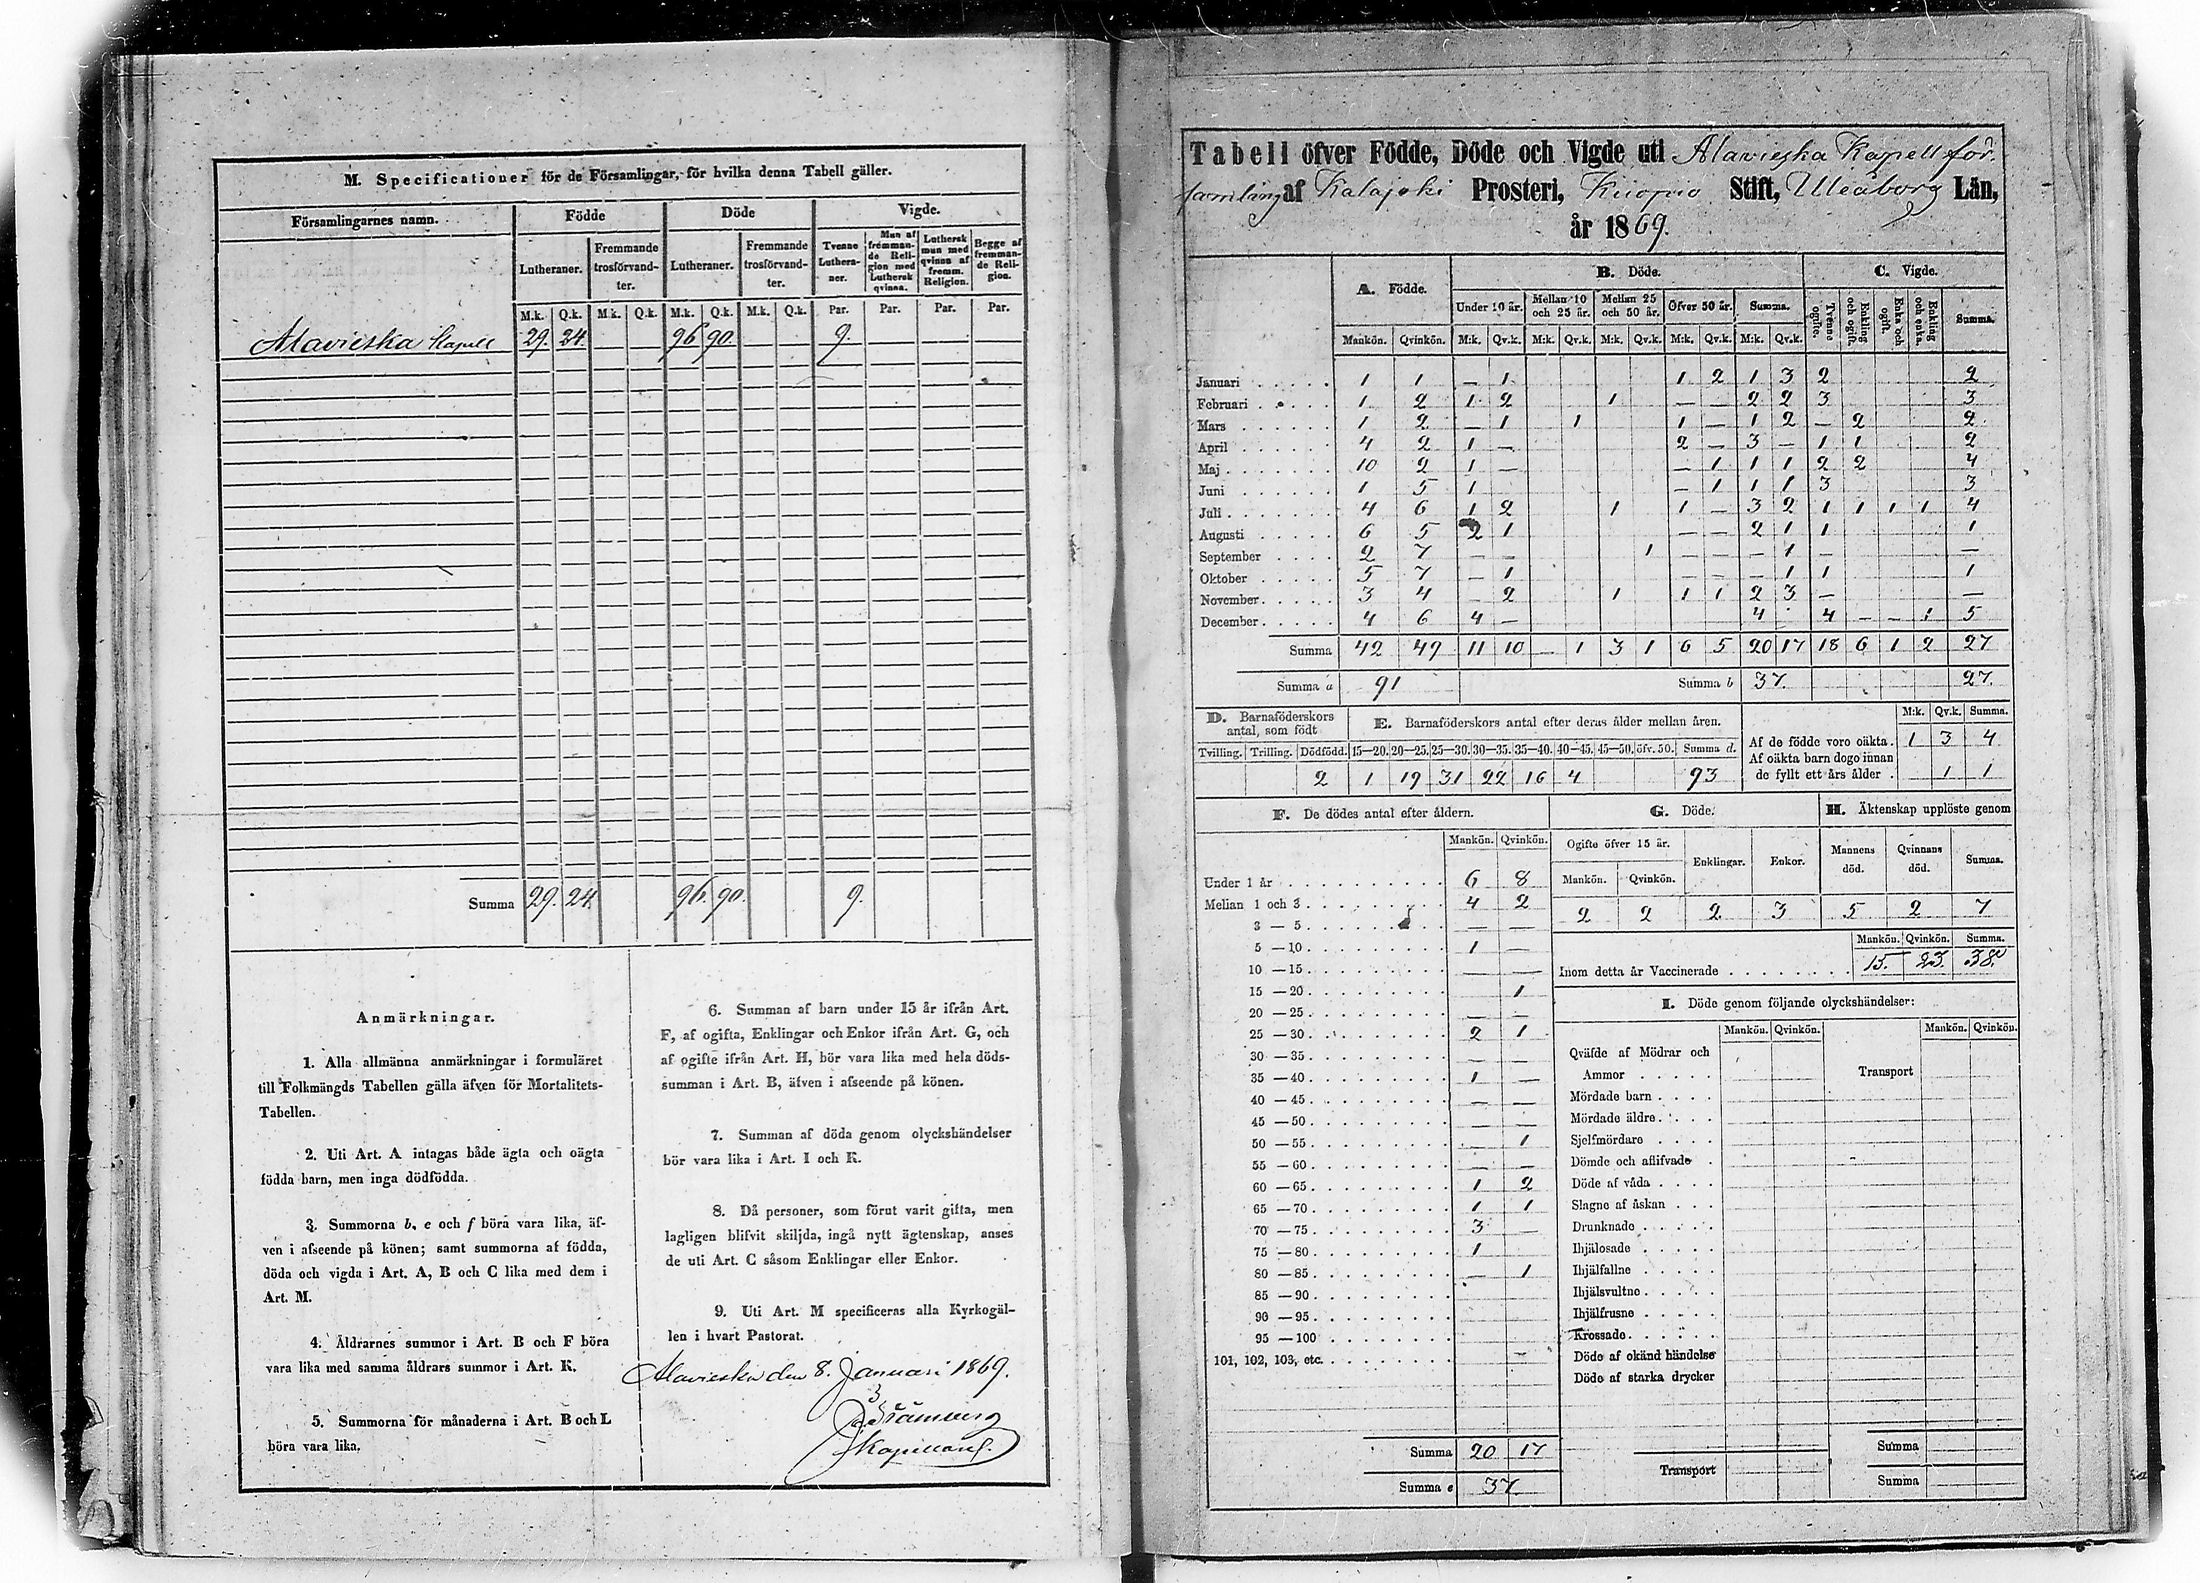 M. Specificationer för de Församlingar, för hvilka denna Tabell gäller.
Församlingarnes namn. Födde Döde Vigde.
Lutheraner. Fremmande trosförvandter. Lutheraner. Fremmande trosförvandter. Tvenne Lutheraner. Man af fremmande Religion med Luthersk qvinna. Luthersk man med qvinna af fremm. Religion. Begge af fremmande Religion.
M.k. Q.k. M.k. Q.k. M.k. Q.k. M.k. Q.k. Par. Par. Par. Par.
Alavieska Kapell 29. 24. 96 90. 9.
Summa 29. 24. 96. 90. 9.
Anmärkningar.
1. Alla allmänna anmärkningar i formuläret
till Folkmängds Tabellen gälla äfven för Mortalitets-
Tabellen.
2. Uti Art. A intagas både ägta och oägta
födda barn, men inga dödfödda.
3. Summorna b, e och f böra vara lika, äf-
ven i afseende på könen; samt summorna af födda,
döda och vigda i Art. A, B och C lika med dem i
Art. M.
4. Åldrarnes summor i Art. B och F böra
vara lika med samma åldrars summor i Art. K.
5. Summorna för månaderna i Art. B och L
böra vara lika.
6. Summan af barn under 15 år ifrån Art.
F, af ogifta, Enklingar och Enkor ifrån Art. G, och
af ogifte ifrån Art. H, bör vara lika med hela döds-
summan i Art. B, äfven i afseende på könen.
7. Summan af döda genom olyckshändelser
bör vara lika i Art. I och K.
8. Då personer, som förut varit gifta, men
lagligen blifvit skiljda, ingå nytt ägtenskap, anses
de uti Art. C såsom Enklingar eller Enkor.
9. Uti Art. M specificeras alla Kyrkogäl-
len i hvart Pastorat.
Alavieska den 8. Januari 1869.
Kapellans.
Tabell öfver Födde, Döde och Vigde uti Alavieska Kapell för-
samling af Kalajoki Prosteri, Kuopio Stift, Uleåborg Län,
år 1869.
A. Födde. B. Döde. C. Vigde.
Under 10 år. Mellan 10 och 25 år. Mellan 25 och 50 år. Öfver 50 år. Summa. Tvänne ogifte. Enkling och ogift. Enka och ogift. Enkling och enka. Summa.
Mankön. Qvinkön. M:k. Qv.k. M:k. Qv.k. M:k. Qv.k. M:k. Qv.k. M:k. Qv.k.
Januari 1 1 — 1 1 2 1 3 2 2
Februari 1 2 1 2 1 — — 2 2 3 3
Mars 1 2 — 1 1 1 — 1 2 — 2 2
April 4 2 1 — 2 — 3 — 1 1 2
Maj 10 2 1 — — 1 1 1 2 2 4
Juni 1 5 1 — 1 1 1 3 3
Juli 4 6 1 2 1 1 — 3 2 1 1 1 1 4
Augusti 6 5 2 1 — — 2 1 1 1
September 2 7 — — 1 — — — 1 — —
Oktober 5 7 — 1 — — — 1 1 1
November 3 4 — 2 1 1 1 2 3 — —
December 4 6 4 — 4 4 — — 1 5
Summa 42 49 11 10 — 1 3 1 6 5 20 17 18 6 1 2 27
Summa a 91 Summa b 37. 27.
D. Barnaföderskors antal, som födt
Tvilling. Trilling. Dödfödd.
2
E. Barnaföderskors antal efter deras ålder mellan åren.
15—20. 20—25. 25—30. 30—35. 35—40. 40—45. 45—50. öfv. 50. Summa d.
1 19 31 22 16 4 93
M:k. Qv.k. Summa.
Af de födde voro oäkta. 1 3 4
Af oäkta barn dogo innan
de fyllt ett års ålder . 1 1
F. De dödes antal efter åldern.
Mankön. Qvinkön.
Under 1 år 6 8
Mellan 1 och 3 4 2
3 — 5 — —
5 — 10 1 —
10 — 15 — —
15 — 20 1
20 — 25 — —
25 — 30 2 1
30 — 35 — —
35 — 40 1 —
40 — 45 — —
45 — 50 — —
50 — 55 — 1
55 — 60 — —
60 — 65 1 2
65 — 70 1 1
70 — 75 3 —
75 — 80 1
80 — 85 — 1
85 — 90
90 — 95
95 — 100
101, 102, 103, etc. —
Summa 20 17
Summa e 37.
G. Döde.
Ogifte öfver 15 år. Enklingar. Enkor.
Mankön. Qvinkön.
2 2 2 3
H. Äktenskap upplöste genom
Mannens död. Qvinnans död. Summa.
5 2 7
Mankön. Qvinkön. Summa.
Inom detta år Vaccinerade 15. 23. 38.
I. Döde genom följande olyckshändelser:
Mankön. Qvinkön. Mankön. Qvinkön.
Qväfde af Mödrar och
Ammor
Transport
Mördade barn
Mördade äldre
Sjelfmördare
Dömde och aflifvade
Döde af våda
Slagne af åskan
Drunknade
Ihjälosade
Ihjälfallne
Ihjälsvultne
Ihjälfrusne
Krossade
Döde af okänd händelse
Döde af starka drycker
Transport
Summa
Summa